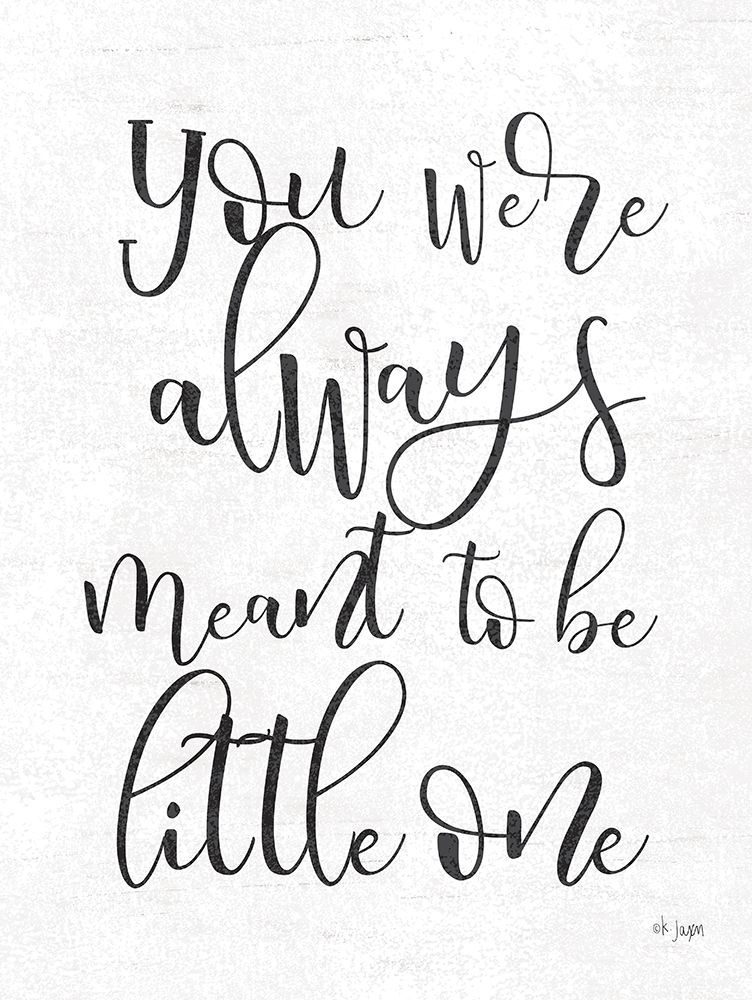 you were
always
meant to be
little one
©K. Jaxn